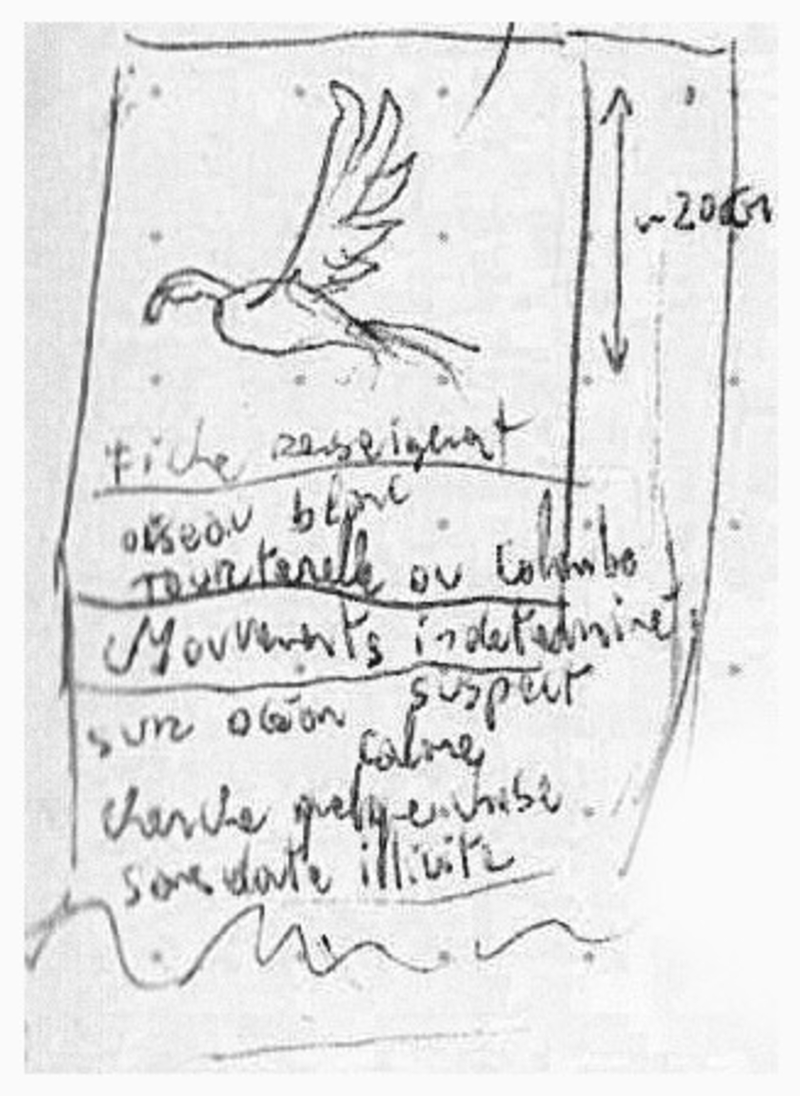 ~20cm
Fiche renseignant
oiseau blanc
Tourterelle ou Colombe
Mouvements indeterminé
suspect
sur océan
calme
cherche quelque chose
sans doute illicite